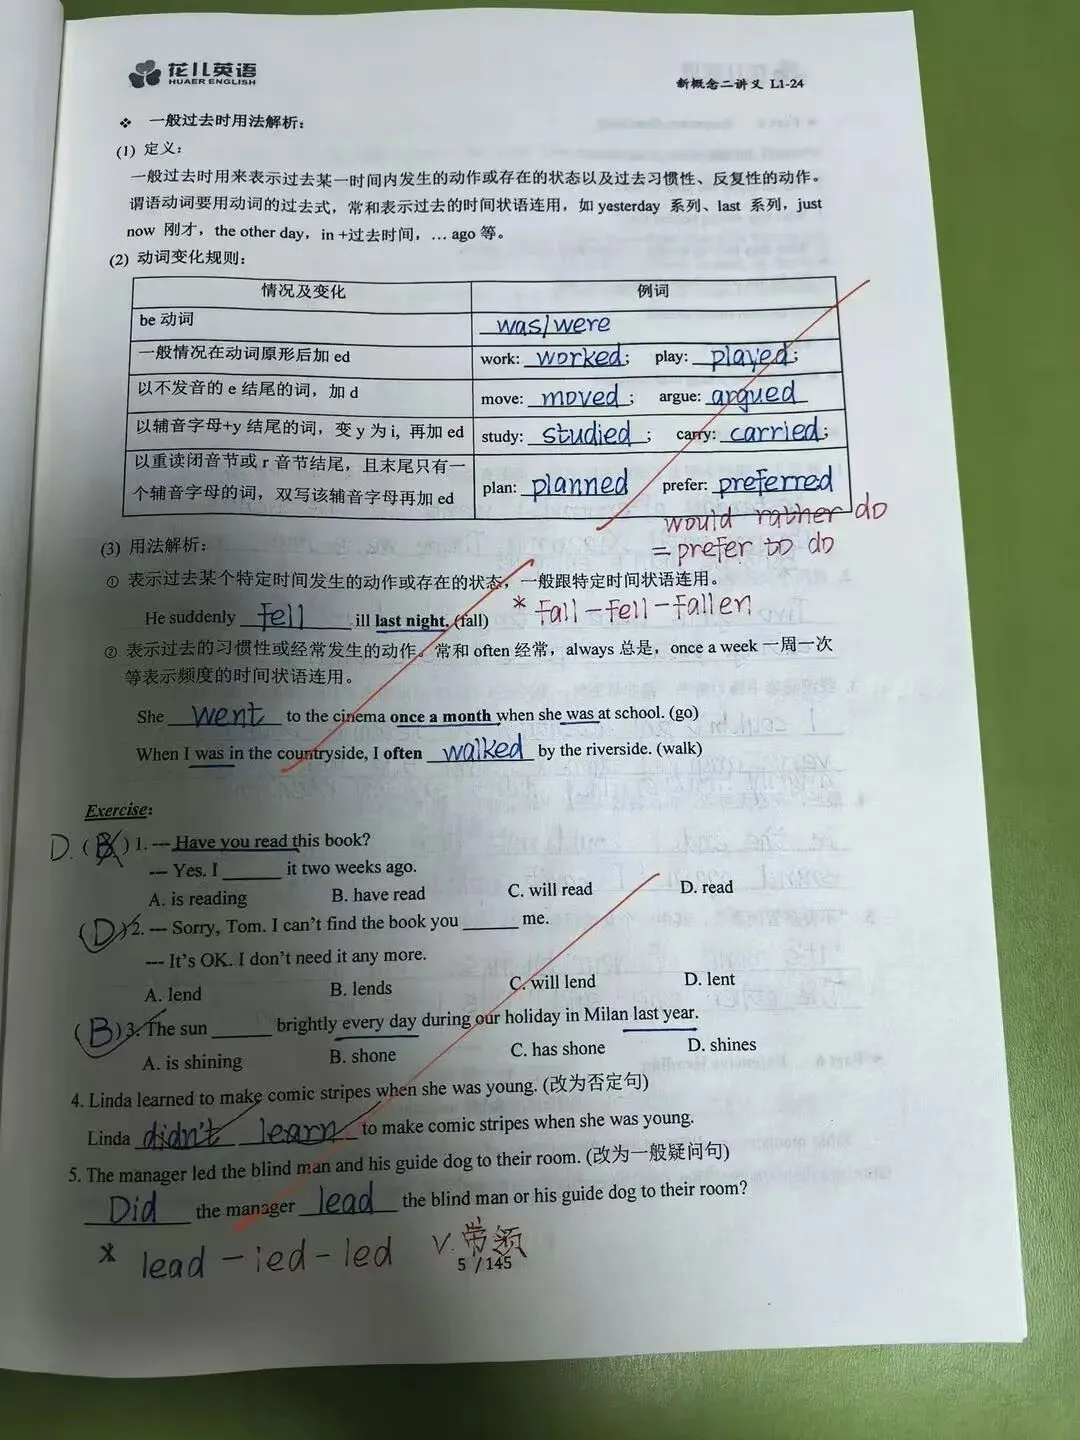 花儿英语
HUAER ENGLISH
新概念二讲义 L1-24
❖ 一般过去时用法解析：
(1) 定义：
一般过去时用来表示过去某一时间内发生的动作或存在的状态以及过去习惯性、反复性的动作。
谓语动词要用动词的过去式，常和表示过去的时间状语连用，如 yesterday 系列、last 系列，just
now 刚才，the other day，in +过去时间，… ago 等。
(2) 动词变化规则：
情况及变化 例词
be 动词 was/were
一般情况在动词原形后加 ed work: worked; play: played;
以不发音的 e 结尾的词，加 d move: moved; argue: argued
以辅音字母+y 结尾的词，变 y 为 i, 再加 ed study: studied; carry: carried;
以重读闭音节或 r 音节结尾，且末尾只有一
个辅音字母的词，双写该辅音字母再加 ed plan: planned prefer: preferred
would rather do
= prefer to do
(3) 用法解析：
① 表示过去某个特定时间发生的动作或存在的状态，一般跟特定时间状语连用。
He suddenly fell ill last night. (fall) * fall-fell-fallen
② 表示过去的习惯性或经常发生的动作。常和 often 经常，always 总是，once a week 一周一次
等表示频度的时间状语连用。
She went to the cinema once a month when she was at school. (go)
When I was in the countryside, I often walked by the riverside. (walk)
Exercise:
D. (B) 1. --- Have you read this book?
--- Yes. I ______ it two weeks ago.
A. is reading B. have read C. will read D. read
(D) 2. --- Sorry, Tom. I can't find the book you ______ me.
--- It's OK. I don't need it any more.
A. lend B. lends C. will lend D. lent
(B) 3. The sun ______ brightly every day during our holiday in Milan last year.
A. is shining B. shone C. has shone D. shines
4. Linda learned to make comic stripes when she was young. (改为否定句)
Linda didn't learn to make comic stripes when she was young.
5. The manager led the blind man and his guide dog to their room. (改为一般疑问句)
Did the manager lead the blind man or his guide dog to their room?
* lead - led - led v. 带领
5 / 145